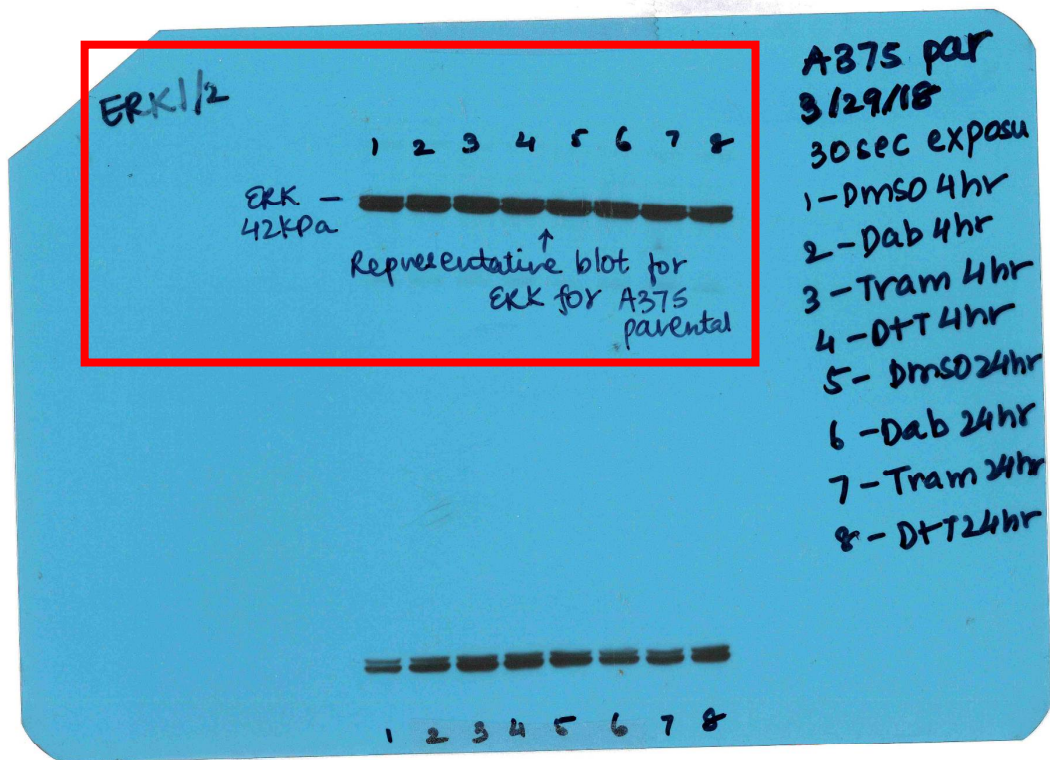 ERK1/2
1 2 3 4 5 6 7 8
ERK -
42KDa
↑
Representative blot for
ERK for A375
parental
A375 par
3/29/18
30sec exposu
1-DMSO 4hr
2-Dab 4hr
3-Tram 4hr
4-D+T 4hr
5- DMSO 24hr
6-Dab 24hr
7-Tram 24hr
8- D+T 24hr
1 2 3 4 5 6 7 8